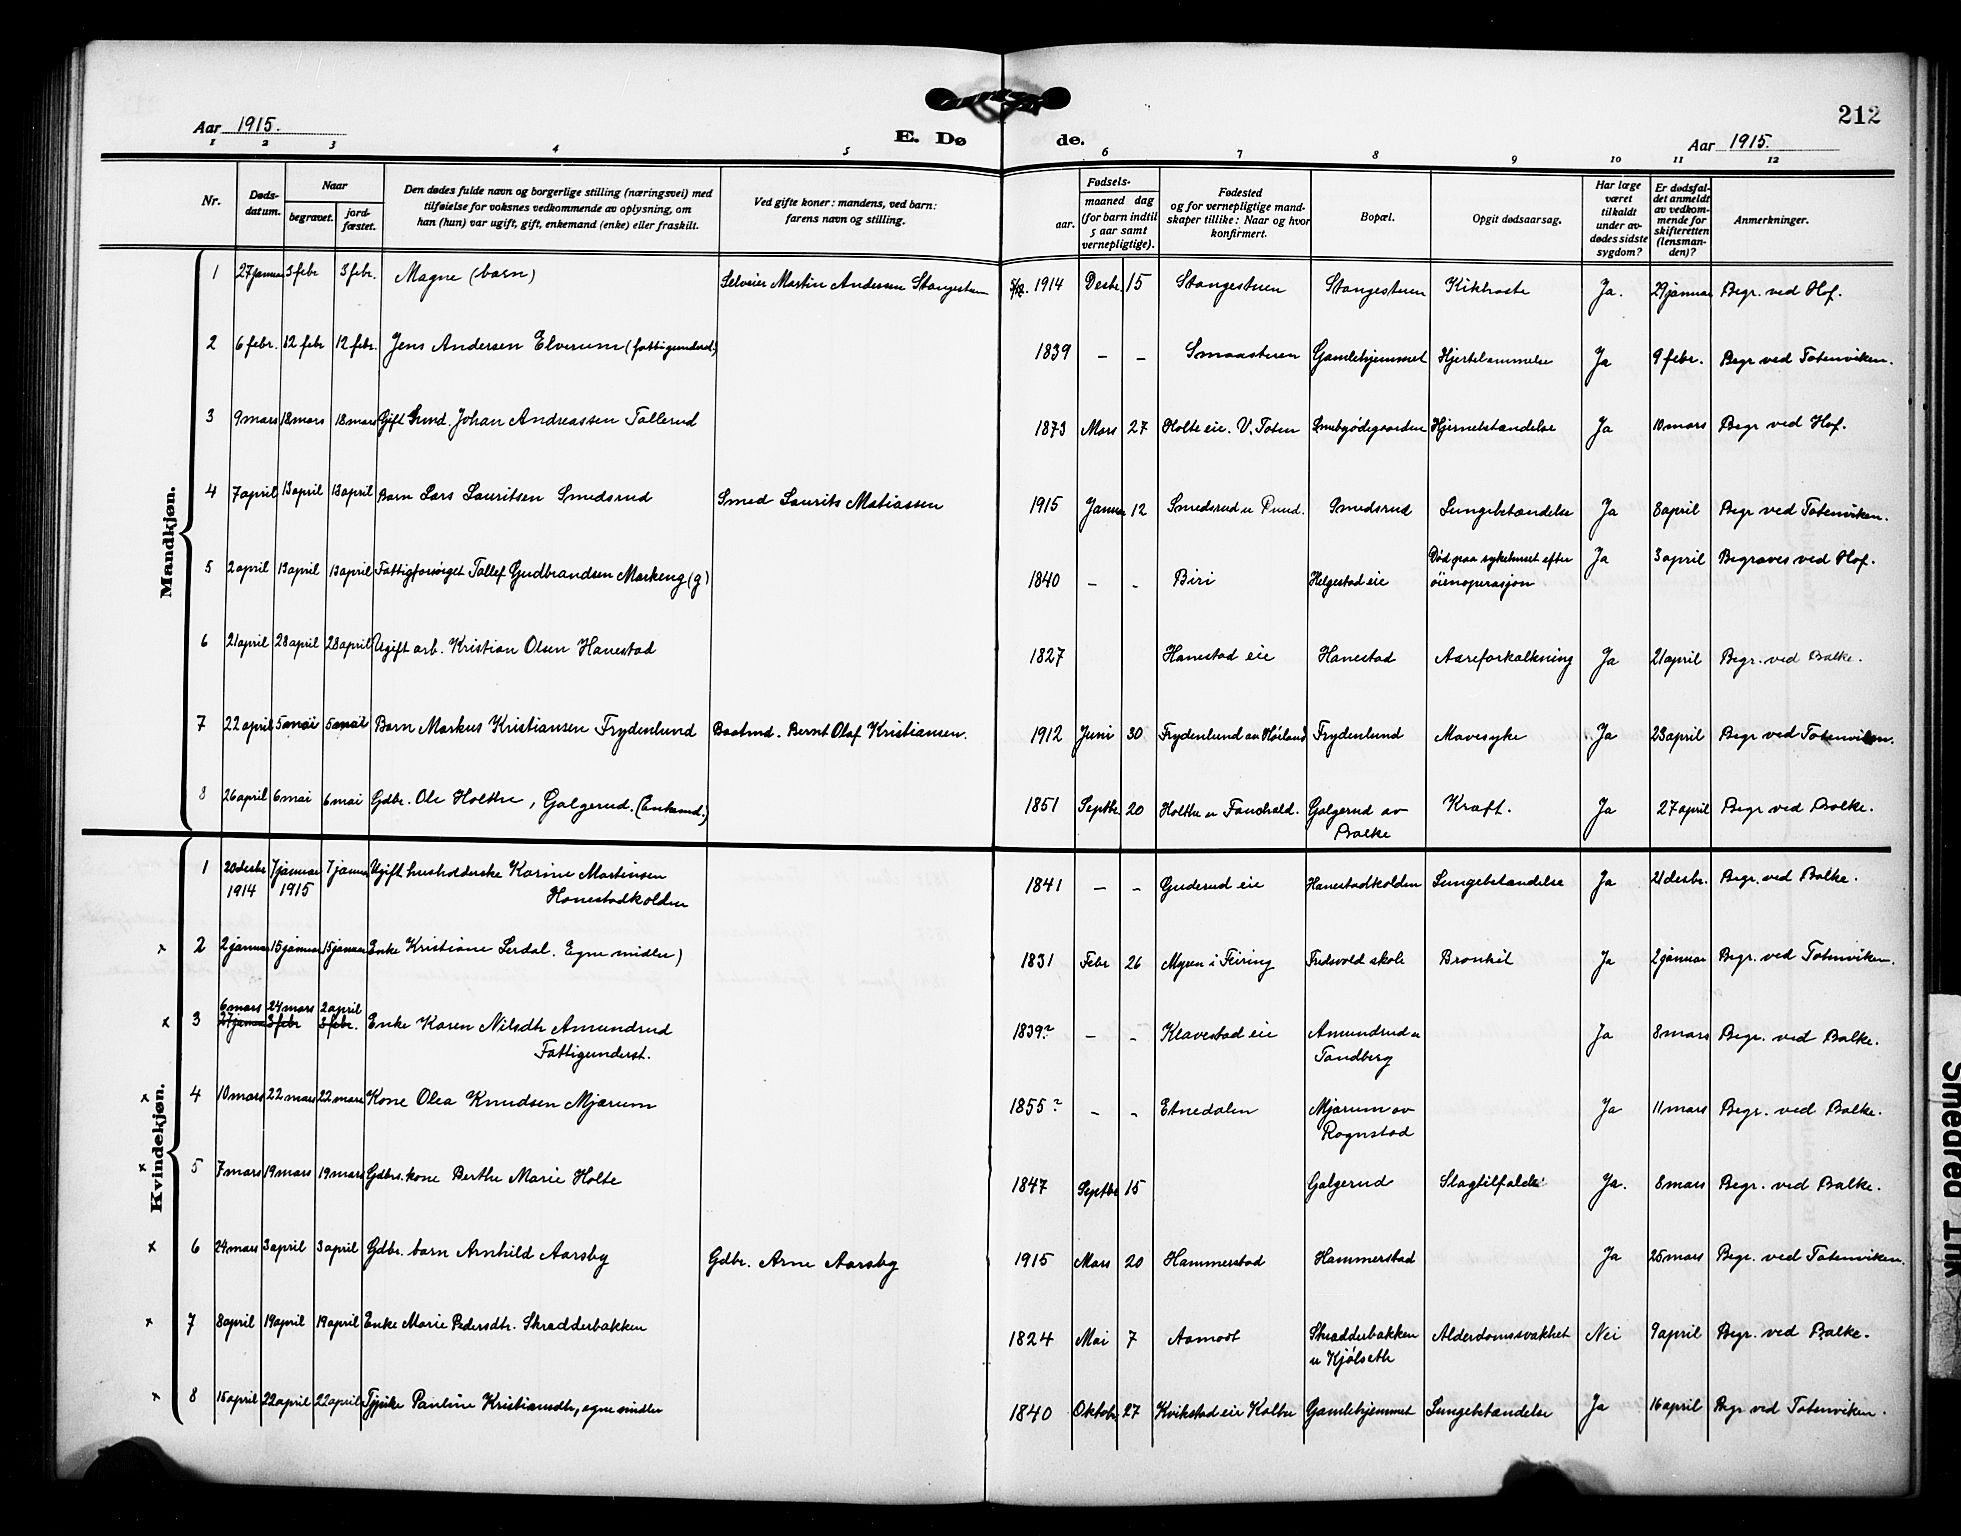 212
Aar 1915.
E. Dø
de.
Aar 1915.
1 2 3 4 5 6 7 8 9 10 11 12
Nr.
Døds-
datum.
Naar
begravet.
jord-
fæstet.
Den dødes fulde navn og borgerlige stilling (næringsvei) med
tilføielse for voksnes vedkommende av oplysning, om
han (hun) var ugift, gift, enkemand (enke) eller fraskilt.
Ved gifte koner: mandens, ved barn:
farens navn og stilling.
Fødsels-
aar.
maaned dag
(for barn indtil
5 aar samt
vernepligtige).
Fødested
og for vernepligtige mand-
skaper tillike: Naar og hvor
konfirmert.
Bopæl.
Opgit dødsaarsag.
Har læge
været
tilkaldt
under av-
dødes sidste
sygdom?
Er dødsfal-
det anmeldt
av vedkom-
mende for
skifteretten
(lensman-
den)?
Anmerkninger.
Mandkjøn.
1 27 januar 3 febr 3 febr. Magne (barn) Selveier Martin Andersen Stangestuen 1914 Desbr. 15 Stangestuen Stangestuen Kikhoste Ja. 29 januar Begr. ved Hof.
2 6 febr. 12 febr 12 febr. Jens Andersen Elverum (fattigunderst) 1839 – – Smaastuen Gamlehjemmet Hjertelammelse Ja 9 febr. Begr ved Totenviken.
3 9 mars 18 mars 18 mars Gift Johan Andreassen Tallerud 1873 Mars 27 Holte eie. V. Toten Smebygdegaarden Hjernebetændelse Ja 10 mars Begr ved Hof.
4 7 april 13 april 13 april Barn Lars Lauritsen Smedsrud Smed Laurits Matiassen 1915 Januar 12 Smedsrud u Ruud. Smedsrud Lungebetændelse Ja 8 april Begr ved Totenviken.
5 2 april 13 april 13 april Fattigforsørget Tollef Gudbrandsen Markeng (g) 1840 – – Biri Helgestad eie Død paa sykehuset efter
øienoperasjon Ja 3 april Begraves ved Hof.
6 21 april 28 april 28 april Ugift arb. Kristian Olsen Hanestad 1827 Hanestad eie Hanestad Aareforkalkning Ja 21 april Begr. ved Balke.
7 22 april 5 mai 5 mai Barn Markus Kristiansen Frydenlund Baatmd. Bernt Olaf Kristiansen. 1912 Juni 30 Frydenlund av Høiland Frydenlund Mavesyke Ja 23 april Begr ved Totenviken.
8 26 april 6 mai 6 mai Gdbr. Ole Holthe, Galgerud. (Enkemd.) 1851 Septbr 20 Holthe u Fauchald. Galgerud av
Balke Kræft. Ja 27 april Begr ved Balke.
Kvindekjøn.
1 20 desbr
1914 7 januar
1915 7 januar Ugift husholderske Karine Martinsen
Hanestadkolden 1841 – – Guderud eie Hanestadkolden Lungebetændelse Ja 21 desbr. Begr. ved Balke.
x 2 2 januar 15 januar 15 januar Enke Kristiane Lerdal. Egne midler) 1831 Febr 26 Myren i Feiring Fredsvold skole Bronkit Ja 2 januar Begr. ved Totenviken.
6 mars 24 mars 2 april
x 3 27 januar 3 febr 3 febr. Enke Karen Nilsdtr Amundrud
Fattigunderst. 1839? – – Klavestad eie Amundrud u
Tandberg Ja 8 mars Begr. ved Balke.
x 4 10 mars 22 mars 22 mars Kone Olea Knudsen Mjørum 1855? – – Etnedalen Mjørum av
Rognstad Ja 11 mars Begr. ved Balke.
x 5 7 mars 19 mars 19 mars Gdbrs. kone Berthe Marie Holte 1847 Septbr 15 Galgerud Slagtilfælde Ja. 8 mars Begr. ved Balke.
x 6 24 mars 3 april 3 april Gdbr. barn Arnhild Aarsby Gdbr. Arne Aarsby 1915 Mars 20 Hammerstad Hammerstad Ja 25 mars Begr. ved Totenviken.
x 7 8 april 19 april 19 april Enke Marie Pedersdtr. Skrædderbakken 1824 Mai 7 Aamodt Skrædderbakken
u Kjølseth Alderdomssvakhet Nei 9 april Begr. ved Balke.
x 8 15 april 22 april 22 april Pauline Kristiansdtr, egne midler 1840 Oktobr 27 Kvikstad eie Kolbu Gamlehjemmet Lungebetændelse Ja 16 april Begr ved Totenviken.
Smedred Ink